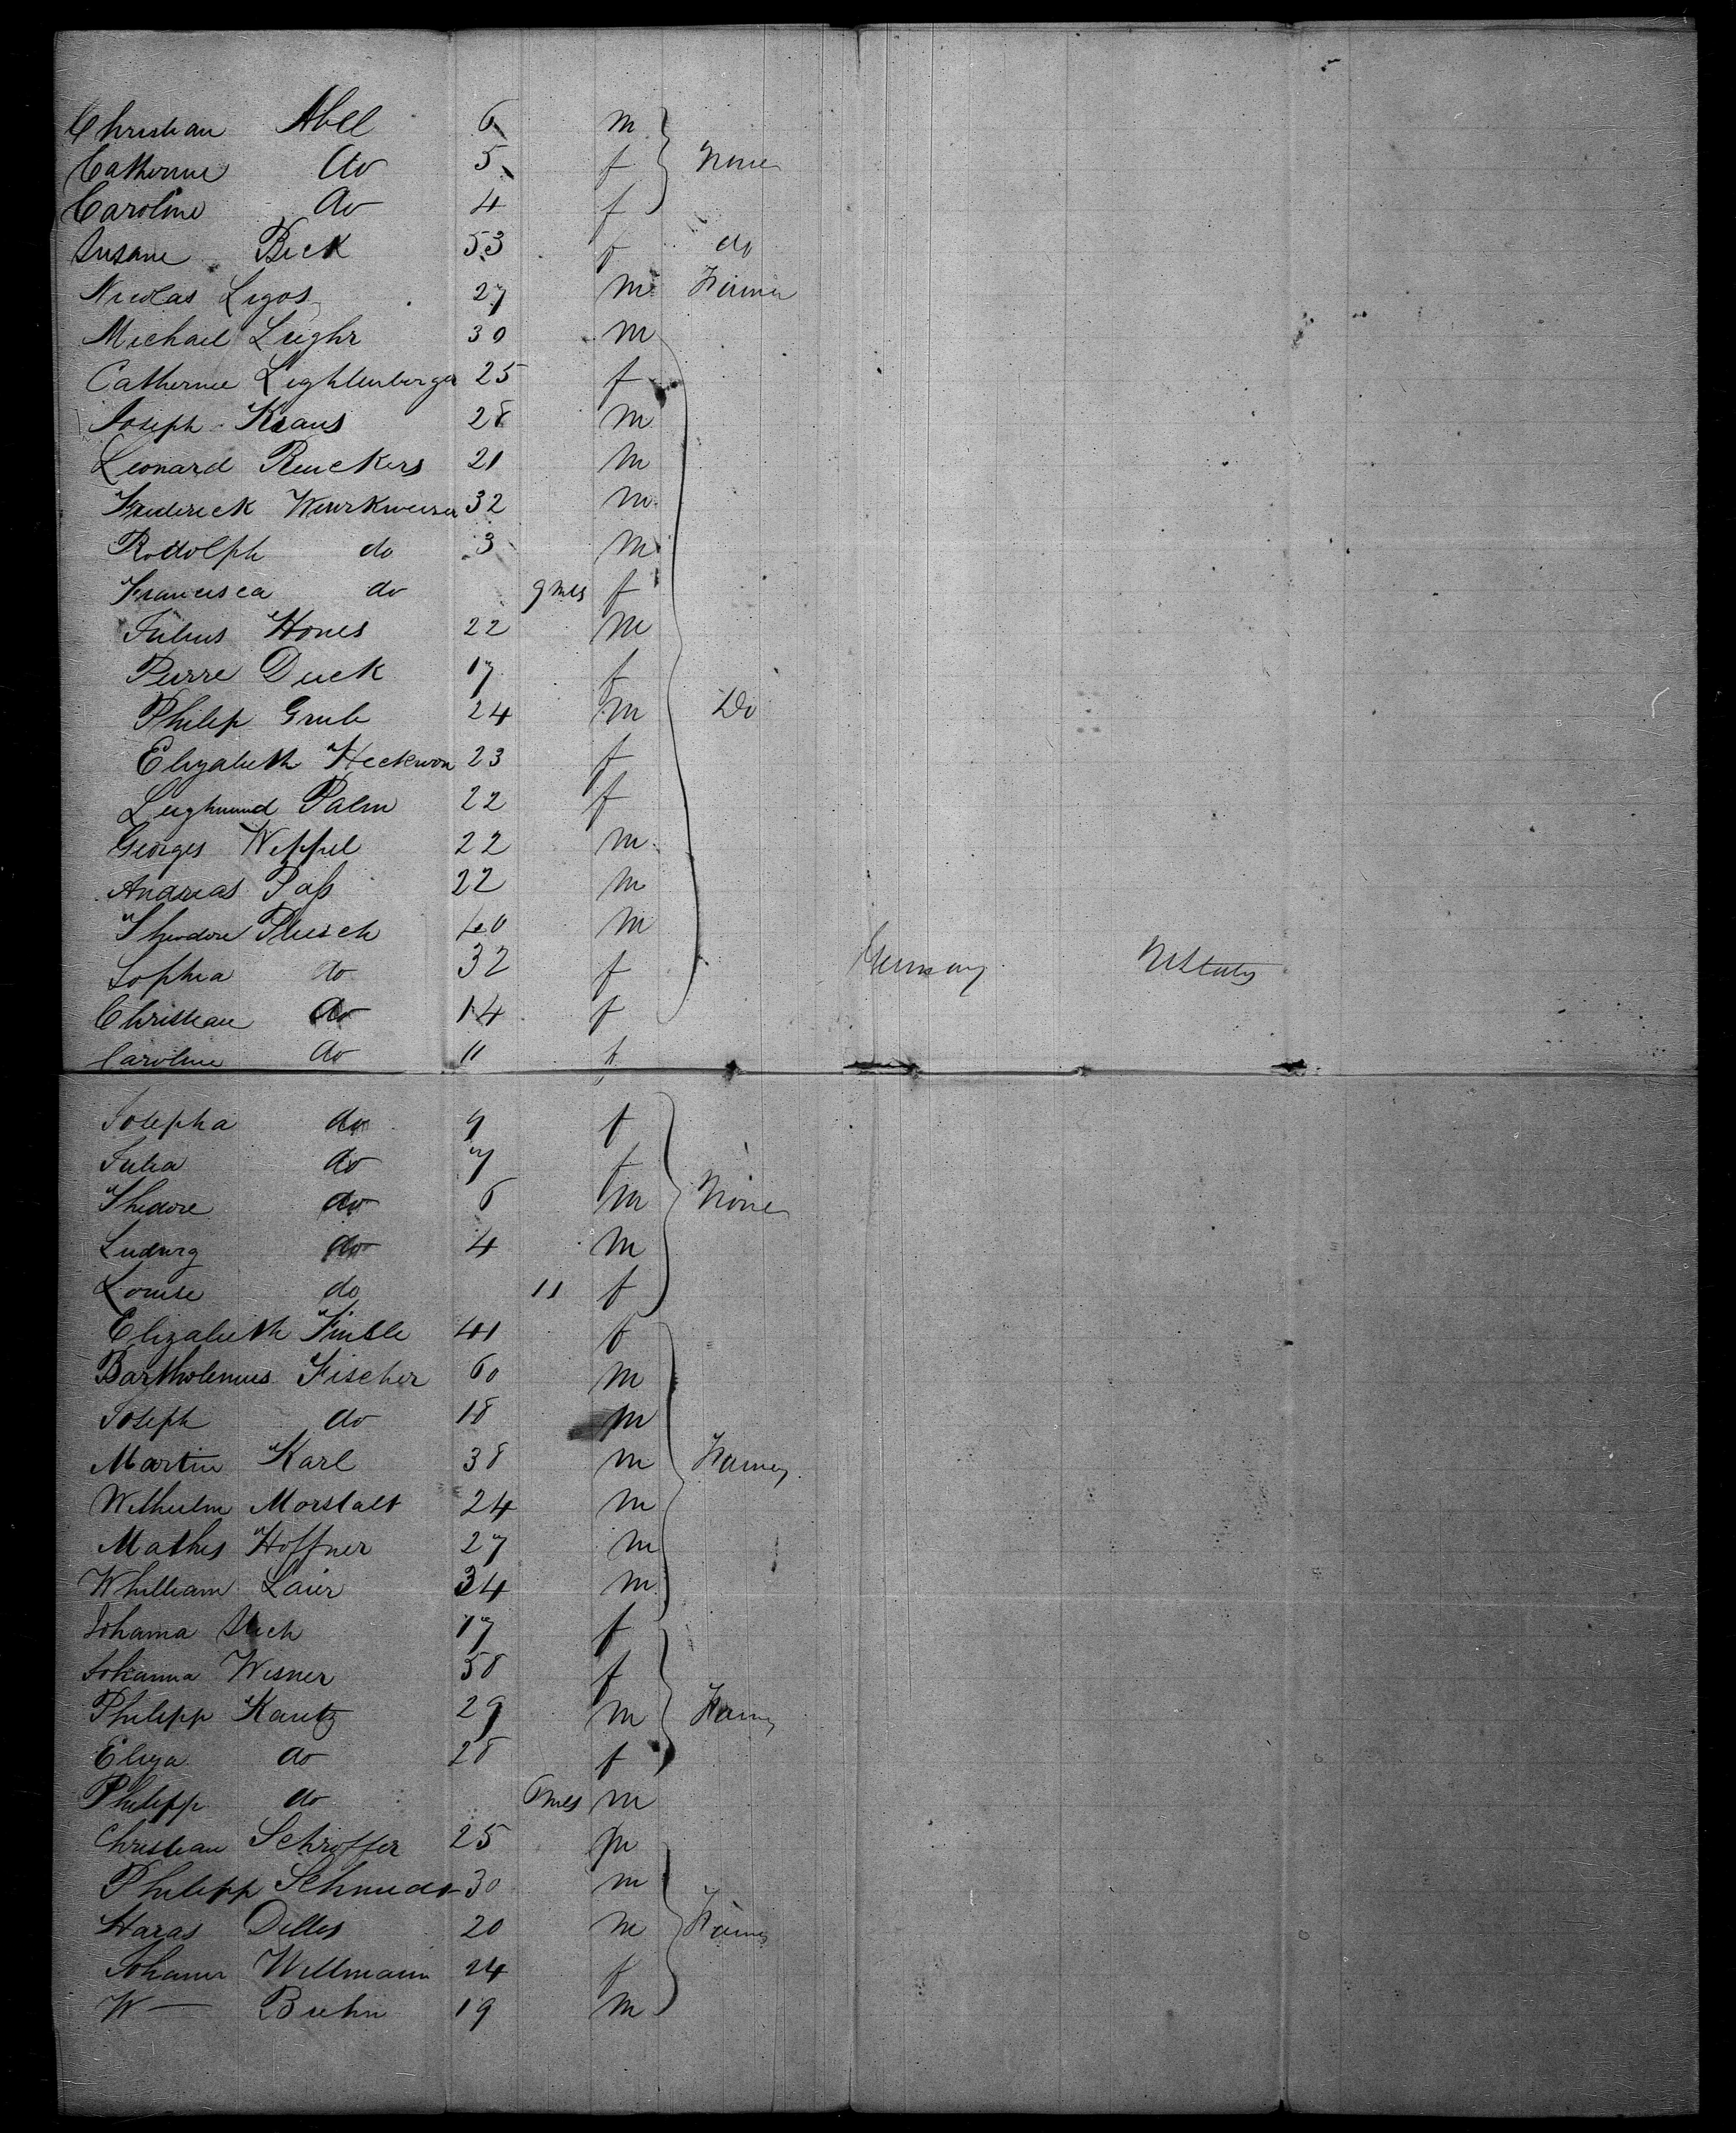 Christian Abel 6 m
Catherine do 5 f None
Caroline do 4 f
Susane Beck 53 f do
Nicolas Ligos 27 m Farmer
Michael Leighr 30 m
Catherine Lightenberger 25 f
Joseph Kraus 28 m
Leonard Reuckers 21 m
Frederick 32 m
Rodolph do 3 m
Francisca do 9 mes f
Julius Hones 22 m
Pierre Duck 17 f
Philip Grub 24 m Do
Elizabeth 23 f
Palm 22 f
Georges Weppel 22 m
Andreas Paſs 22 m
Theodore Pleisch 40 m
Sophia do 32 f Germany UStates
Christian do 14 f
Caroline do 11 f
Josepha do 9 f
Julia do 7 f
Thedore do 6 m None
Ludwig do 4 m
Louise do 11 f
Elizabeth Finkle 41 f
Bartholemus Fischer 60 m
Joseph do 18 m
Martin Karl 38 m Farmer
Wilhielm Morstalt 24 m
Mathis Hoffner 27 m
Whilliam Laier 34 m
Johanna Stich 17 f
Johanna Wisner 58 f
Philipp Kautz 29 m Farmer
Eliza do 28 f
Philipp do 6 mes m
Christian Schroffer 25 m
Philipp Schmidt 30 m
Haras Delles 20 m Farmer
Johann Willmann 24 f
W— Buhn 19 m